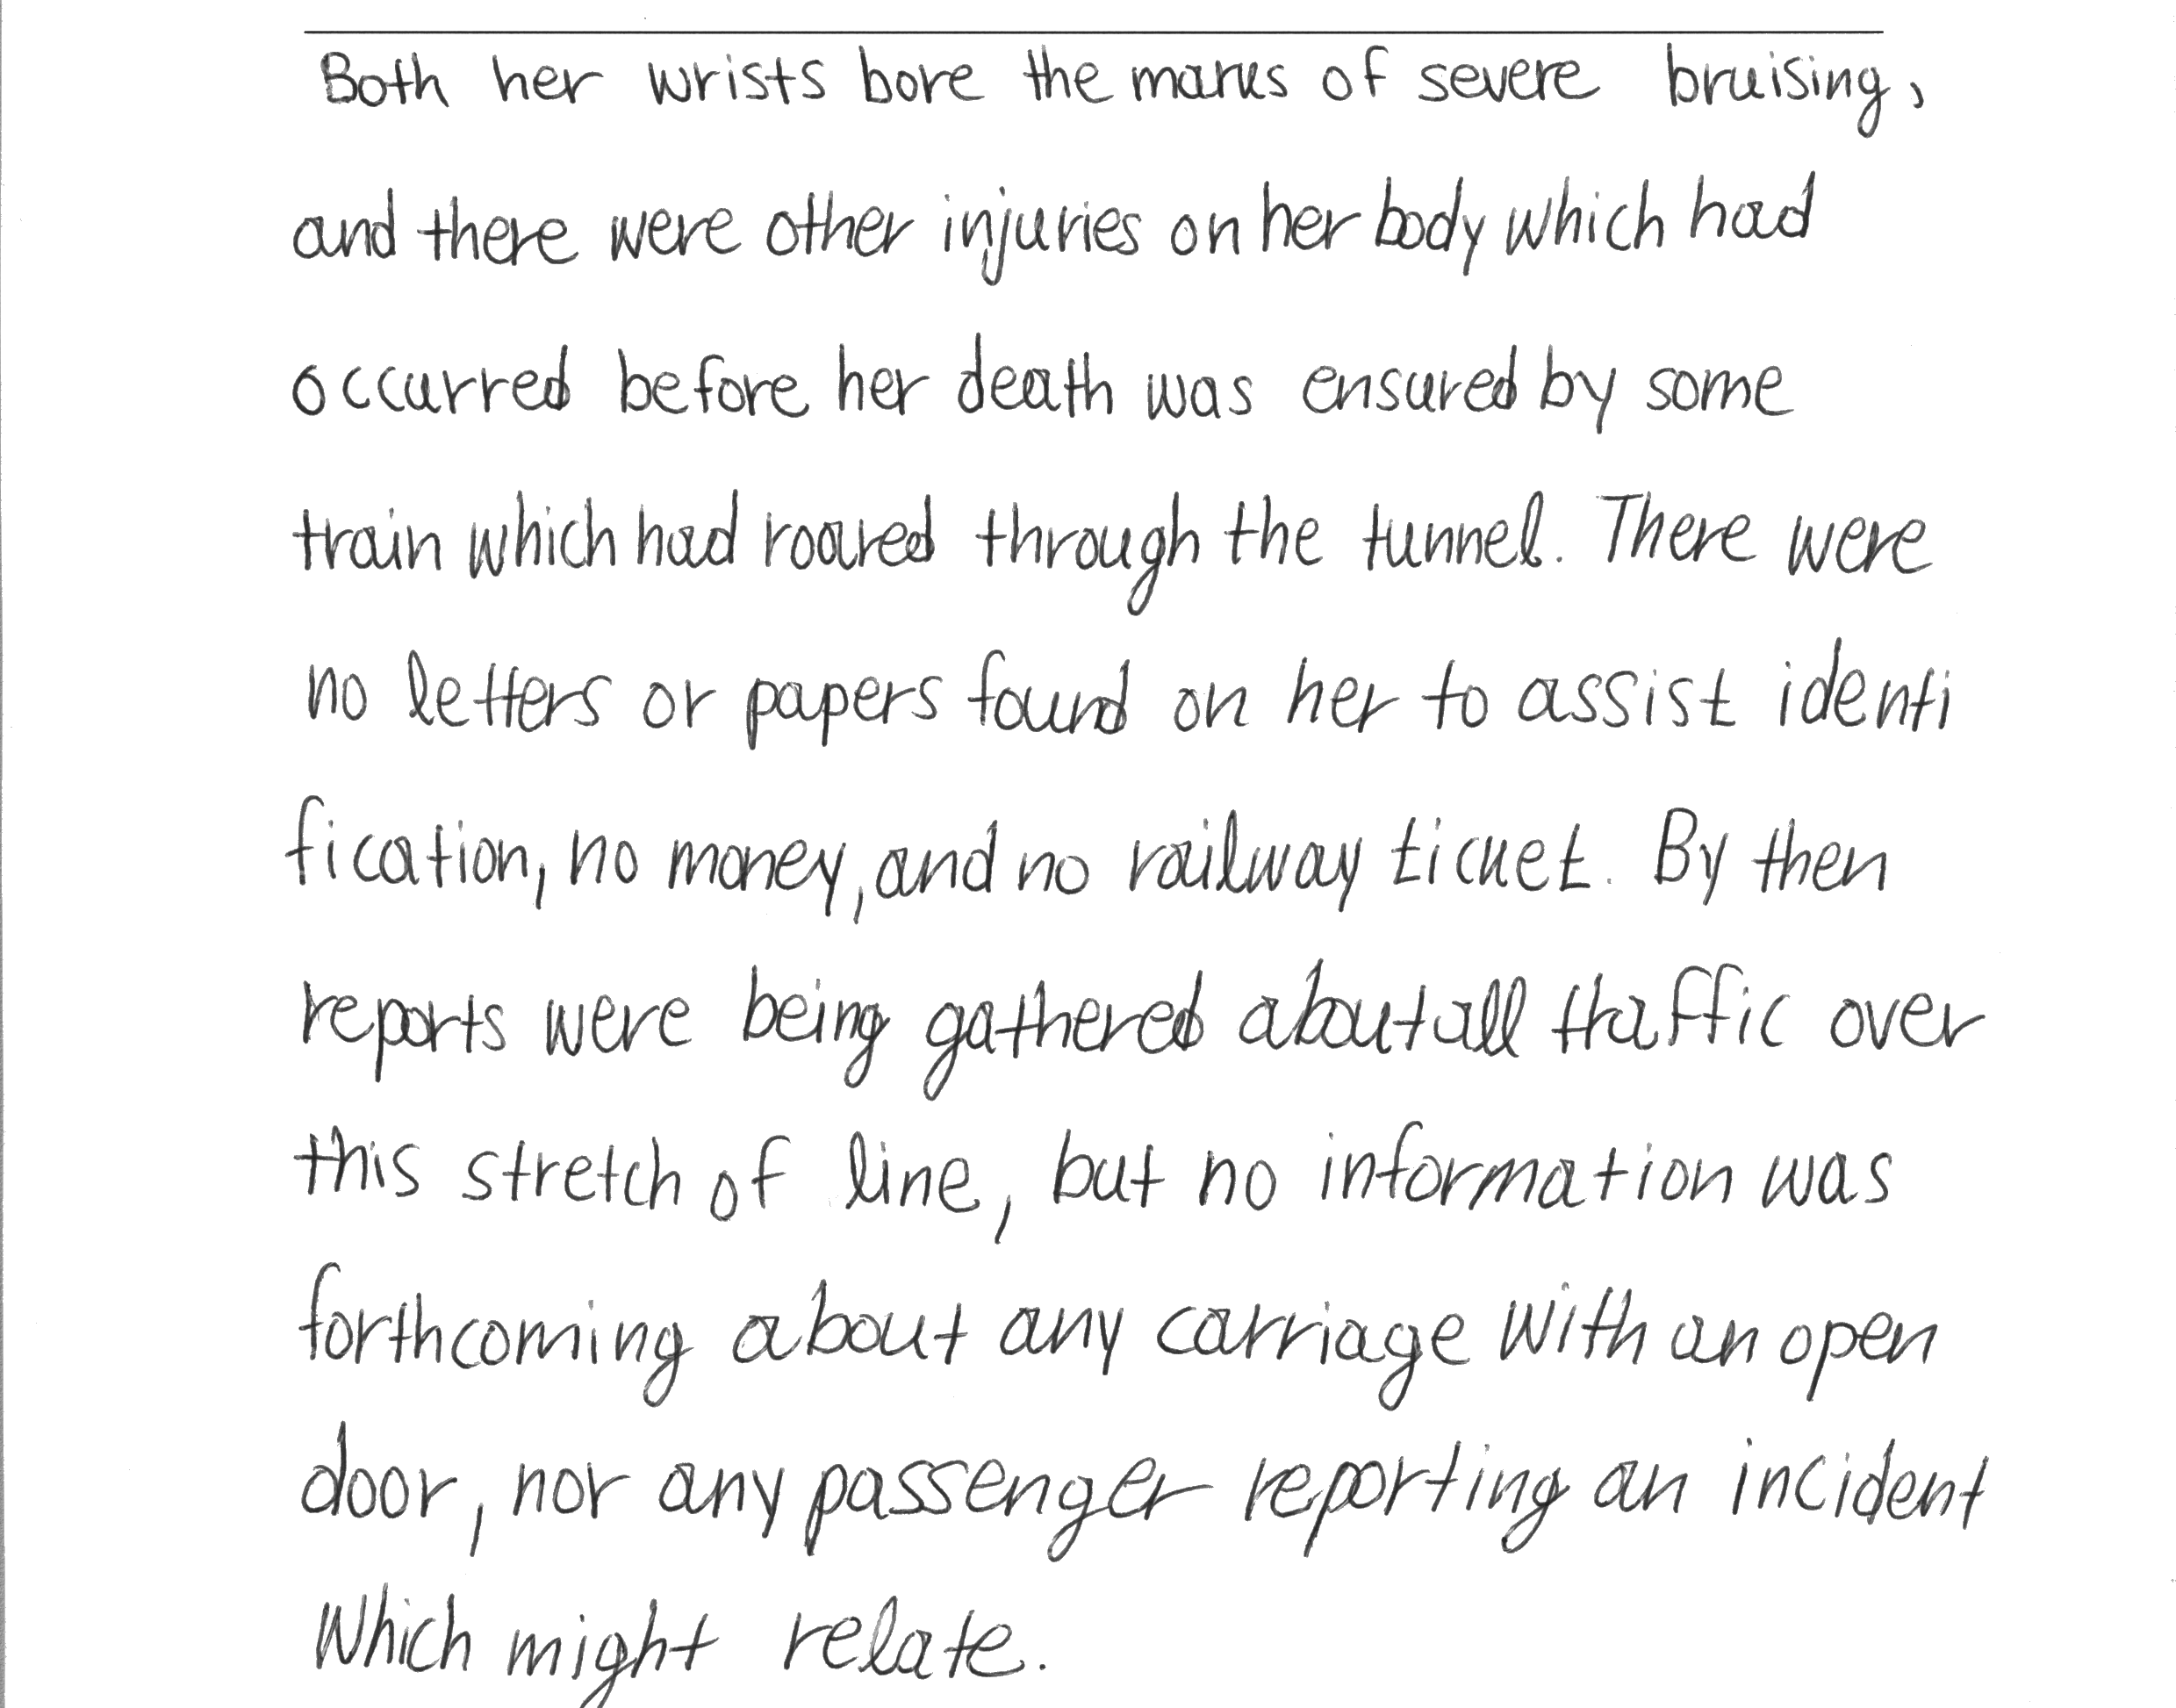 Both her wrists bore the marks of severe bruising,
and there were other injuries on her body which had
occurred before her death was ensured by some
train which had roared through the tunnel. There were
no letters or papers found on her to assist identi
fication, no money, and no railway ticket. By then
reports were being gathered about all traffic over
this stretch of line, but no information was
forthcoming about any carriage with an open
door, nor any passenger reporting an incident
which might relate.